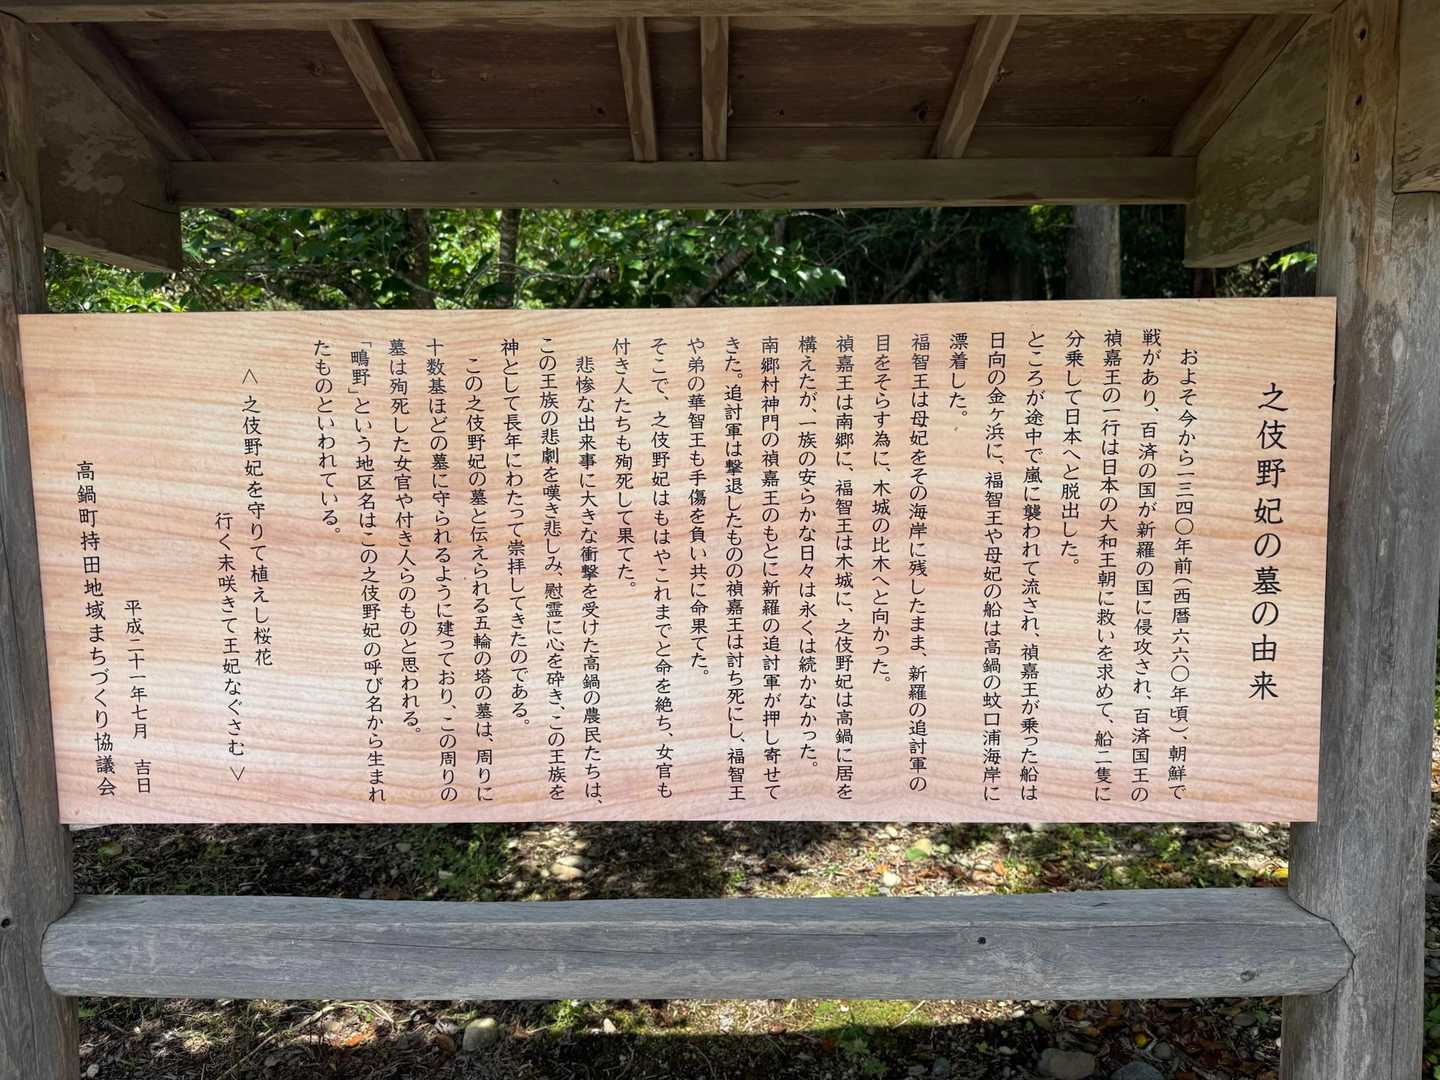 之伎野妃の墓の由来
およそ今から一三四〇年前(西暦六六〇年頃)、朝鮮で
戦があり、百済の国が新羅の国に侵攻され、百済国王の
禎嘉王の一行は日本の大和王朝に救いを求めて、船二隻に
分乗して日本へと脱出した。
ところが途中で嵐に襲われて流され、禎嘉王が乗った船は
日向の金ヶ浜に、福智王や母妃の船は高鍋の蚊口浦海岸に
漂着した。
福智王は母妃をその海岸に残したまま、新羅の追討軍の
目をそらす為に、木城の比木へと向かった。
禎嘉王は南郷に、福智王は木城に、之伎野妃は高鍋に居を
構えたが、一族の安らかな日々は永くは続かなかった。
南郷村神門の禎嘉王のもとに新羅の追討軍が押し寄せて
きた。追討軍は撃退したものの禎嘉王は討ち死にし、福智王
や弟の華智王も手傷を負い共に命果てた。
そこで、之伎野妃はもはやこれまでと命を絶ち、女官も
付き人たちも殉死して果てた。
悲惨な出来事に大きな衝撃を受けた高鍋の農民たちは、
この王族の悲劇を嘆き悲しみ、慰霊に心を砕き、この王族を
神として長年にわたって崇拝してきたのである。
この之伎野妃の墓と伝えられる五輪の塔の墓は、周りに
十数基ほどの墓に守られるように建っており、この周りの
墓は殉死した女官や付き人らのものと思われる。
「鴫野」という地区名はこの之伎野妃の呼び名から生まれ
たものといわれている。
＜ 之伎野妃を守りて植えし桜花
行く末咲きて王妃なぐさむ ＞
平成二十一年七月 吉日
高鍋町持田地域まちづくり協議会